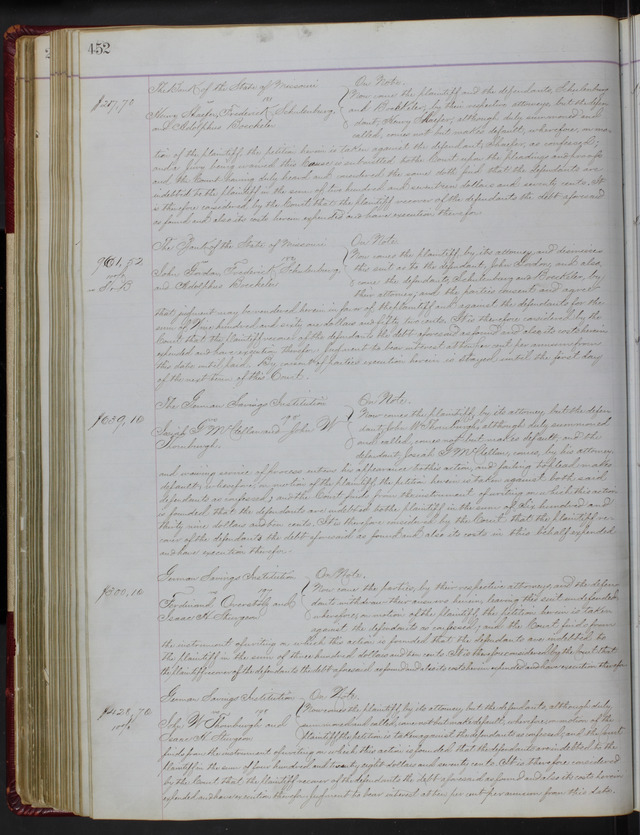 452
The Bank of the State of Missouri On Note.
$217,70 vs Now come the plaintiff and the defendants, Schulenburg
Henry Shaefer, Frederick Schulenburg and Boeckeler, by their respective attorneys, but the defen-
and Adolphus Boeckeler dant, Henry Shaefer, although duly summoned and
called, comes not but makes default; wherefore, on mo-
tion of the plaintiff, the petition herein is taken against the defendant, Shaefer, as confessed;
and a jury being waived this Cause is submitted to the Court upon the pleadings and proofs
and the Court having duly heard and considered the same doth find that the defendants are
indebted to the plaintiff in the sum of two hundred and seventeen dollars and seventy cents. It
is therefore considered by the Court that the plaintiff recover of the defendants the debt aforesaid
as found and also its costs herein expended and have execution therefor.
The Bank of the State of Missouri On Note.
961,52 vs Now comes the plaintiff, by its attorney, and dismisses
John Gordon, Frederick Schulenburg this suit as to the defendant, John Gordon; and also
and Adolphus Boeckeler come the defendants, Schulenburg and Boeckeler, by
their attorney; and the parties consent and agree
that judgment may be rendered herein in favor of the plaintiff and against the defendants for the
sum of Nine hundred and sixty one dollars and fifty two cents. It is therefore considered by the
Court that the plaintiff recover of the defendants the debt aforesaid as found and also its costs herein
expended and have execution therefor. Judgment to bear interest at ten per cent per annum from
this date until paid. By consent of parties execution herein is stayed until the first day
of the next term of this Court.
The German Savings Institution On Note.
$639,10 vs Now comes the plaintiff, by its attorney, but the defen-
Josiah G McClellan and John W dant, John W Thornburgh, although duly summoned
Thornburgh and called, comes not but makes default; and the
defendant, Josiah G McClellan, comes, by his attorney,
and waiving service of process enters his appearance to this action, and failing to plead makes
default; wherefore, on motion of the plaintiff, the petition herein is taken against both said
defendants as confessed; and the Court finds from the instrument of writing on which this action
is founded that the defendants are indebted to the plaintiff in the sum of Six hundred and
thirty nine dollars and ten cents. It is therefore considered by the Court that the plaintiff re-
cover of the defendants the debt aforesaid as found and also its costs in this behalf expended
and have execution therefor.
German Savings Institution On Note.
$300,10 vs Now come the parties, by their respective attorneys, and the defen-
Ferdinand Overstolz and dants withdraw their answer herein, leaving this suit undefended;
Isaac H. Sturgeon wherefore, on motion of the plaintiff, the petition herein is taken
against the defendants as confessed; and the Court finds from
the instrument of writing on which this action is founded that the defendants are indebted to
the plaintiff in the sum of three hundred dollars and ten cents. It is therefore considered by the Court that
the plaintiff recover of the defendants the debt aforesaid as found and also its costs herein expended and have execution therefor.
German Savings Institution On Note.
$428,70 vs Now comes the plaintiff, by its attorney, but the defendants, although duly
John W Thornburgh and summoned and called, come not but make default; wherefore, on motion of the
Isaac H. Sturgeon plaintiff the petition is taken against the defendants as confessed; and the Court
finds from the instrument of writing on which this action is founded that the defendants are indebted to the
plaintiff in the sum of four hundred and twenty eight dollars and seventy cents. It is therefore considered
by the Court that the plaintiff recover of the defendants the debt aforesaid as found and also its costs herein
expended and have execution therefor. Judgment to bear interest at ten per cent per annum from this date.